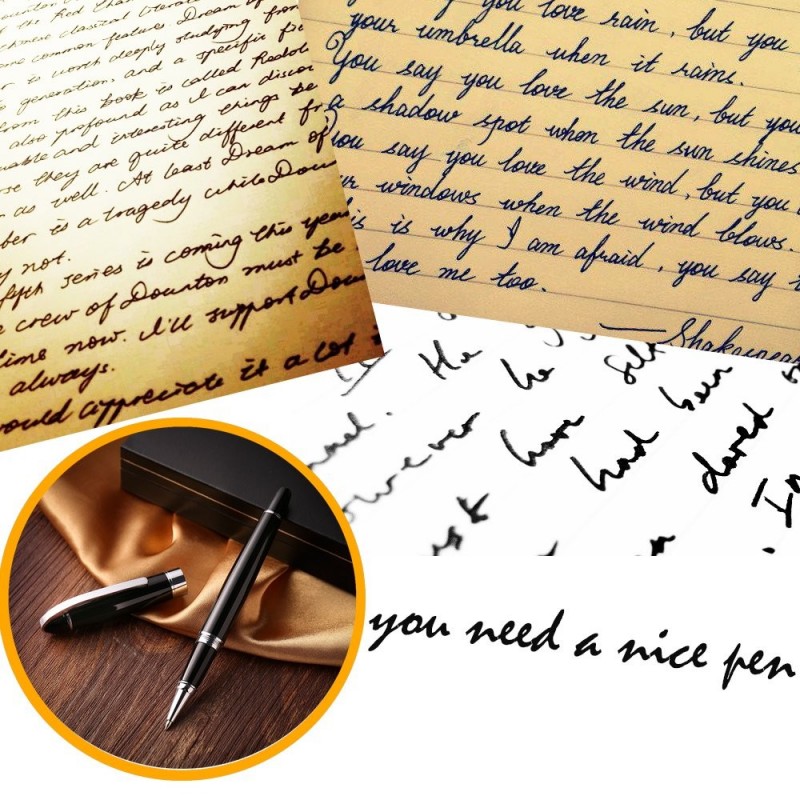 the Red Cham
classical Literat
common features. Dream of
is worth deeply studying from
generation, and a specific
from this book is called Redolo
also profound as I can disco
and interesting things be
they are quite different fr
as well. At least Dream of
ber is a tragedy while Down
y not.
fifth series is coming this year
e crew of Downton must be
time now. I'll support Dow
always.
would appreciate it a lot i
y you love rain, but you
your umbrella when it rains.
You say you love the sun, but you
a shadow spot when the sun shines
You say you love the wind, but you
ur windows when the wind blows.
is is why I am afraid, you say
love me too.
— Shakespear
He he self
nal.
owever have had been
usk dared
In
you need a nice pen